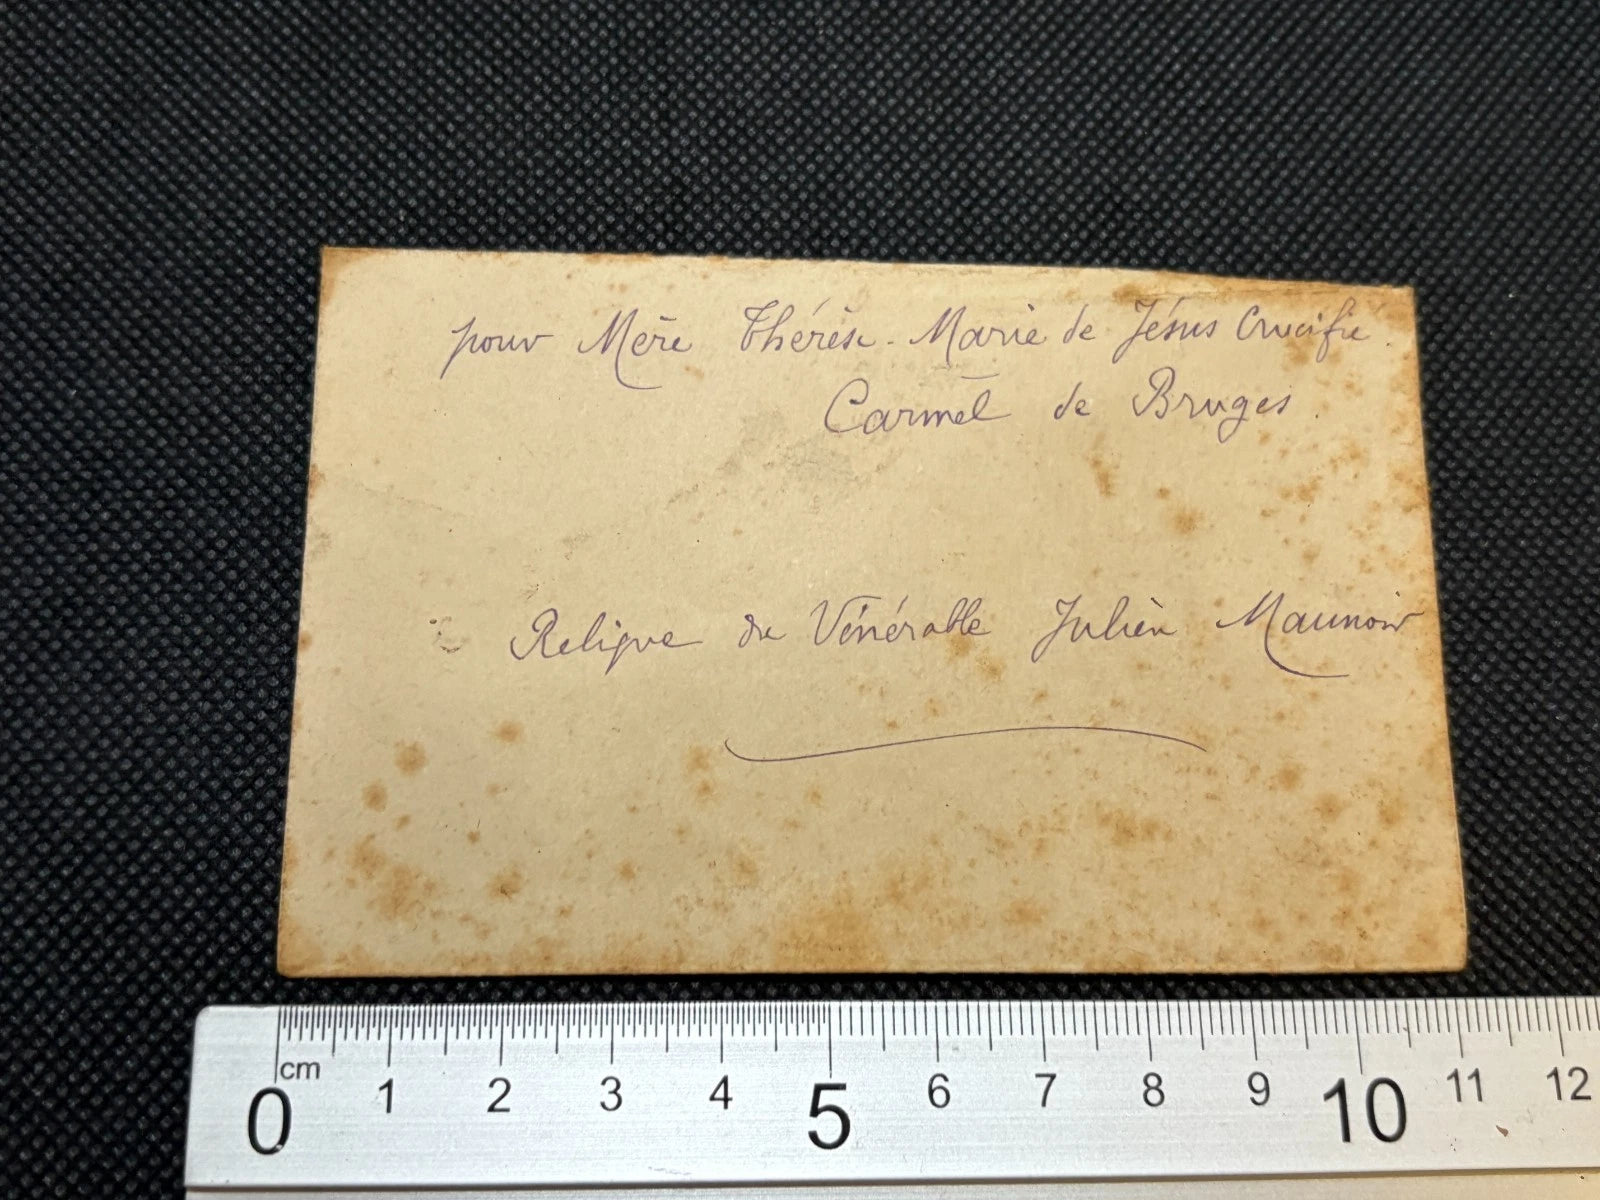 pour Mère Thérèse-Marie de Jésus Crucifié.
Carmel de Bruges.
Relique du Vénérable Julien Maunoir
cm
0 1 2 3 4 5 6 7 8 9 10 11 12